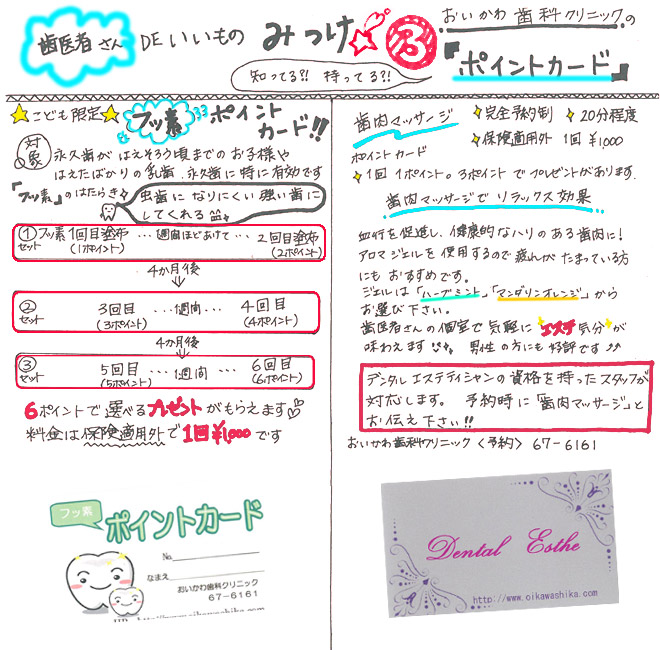 歯医者さん DE いいもの みっけ る
おいかわ歯科クリニックの
『ポイントカード』
知ってる?! 持ってる?!
こども限定
フッ素 ポイントカード!!
対象
永久歯がはえそろう頃までのお子様や
はえたばかりの乳歯、永久歯に特に有効です
「フッ素」のはたらき
虫歯になりにくい強い歯に
してくれる
①フッ素1回目塗布 ‥1週間ほどあけて‥ 2回目塗布
セット (1ポイント) (2ポイント)
4か月後
② 3回目 ‥1週間‥ 4回目
セット (3ポイント) (4ポイント)
4か月後
③ 5回目 ‥1週間‥ 6回目
セット (5ポイント) (6ポイント)
6ポイントで選べるプレゼントがもらえます
料金は保険適用外で1回¥1,000です
フッ素
ポイントカード
No.
なまえ
おいかわ歯科クリニック
67-6161
歯肉マッサージ
ポイントカード
完全予約制 20分程度
保険適用外 1回 ¥1,000
1回1ポイント。3ポイントでプレゼントがあります。
歯肉マッサージでリラックス効果
血行を促進し、健康的なハリのある歯肉に!
アロマジェルを使用するので疲れがたまっている方
にもおすすめです。
ジェルは「ハーブミント」「マンダリンオレンジ」から
お選び下さい。
歯医者さんの個室で気軽に"エステ気分"が
味わえます 男性の方にも好評です
デンタルエステティシャンの資格を持ったスタッフが
対応します。 予約時に「歯肉マッサージ」と
お伝え下さい!!
おいかわ歯科クリニック〈予約〉67-6161
Dental Esthe
http://www.oikawashika.com